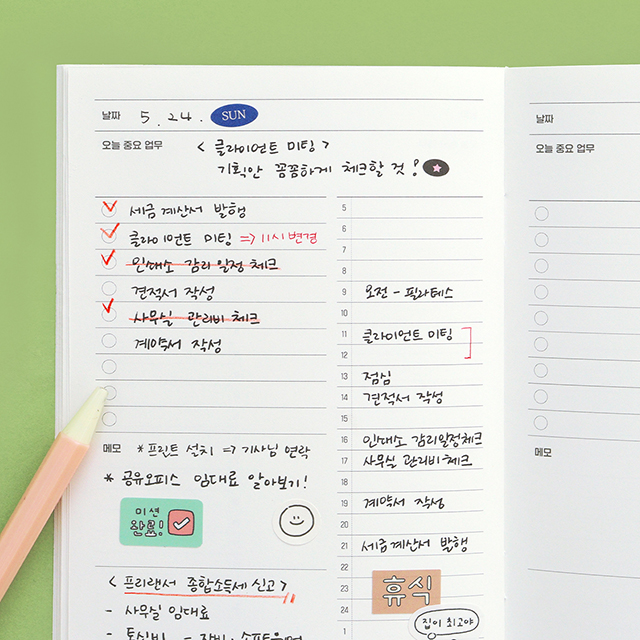 날짜 5. 24. SUN
오늘 중요 업무 < 클라이언트 미팅 >
기획안 꼼꼼하게 체크할 것!
세금계산서 발행
클라이언트 미팅 => 11시 변경
인쇄소 감리 일정 체크
견적서 작성
사무실 관리비 체크
계약서 작성
메모 * 프린트 설치 => 기사님 연락
* 공유오피스 임대료 알아보기!
미션
완료!
< 프리랜서 종합소득세 신고 >
- 사무실 임대료
5
6
7
8
9 오전 - 필라테스
10
11 클라이언트 미팅
12
13 점심
14 견적서 작성
15
16 인쇄소 감리일정체크
17 사무실 관리비 체크
18
19 계약서 작성
20
21 세금계산서 발행
22
23 휴식
24
1 집이 최고야
날짜
오늘 중요 업무
메모